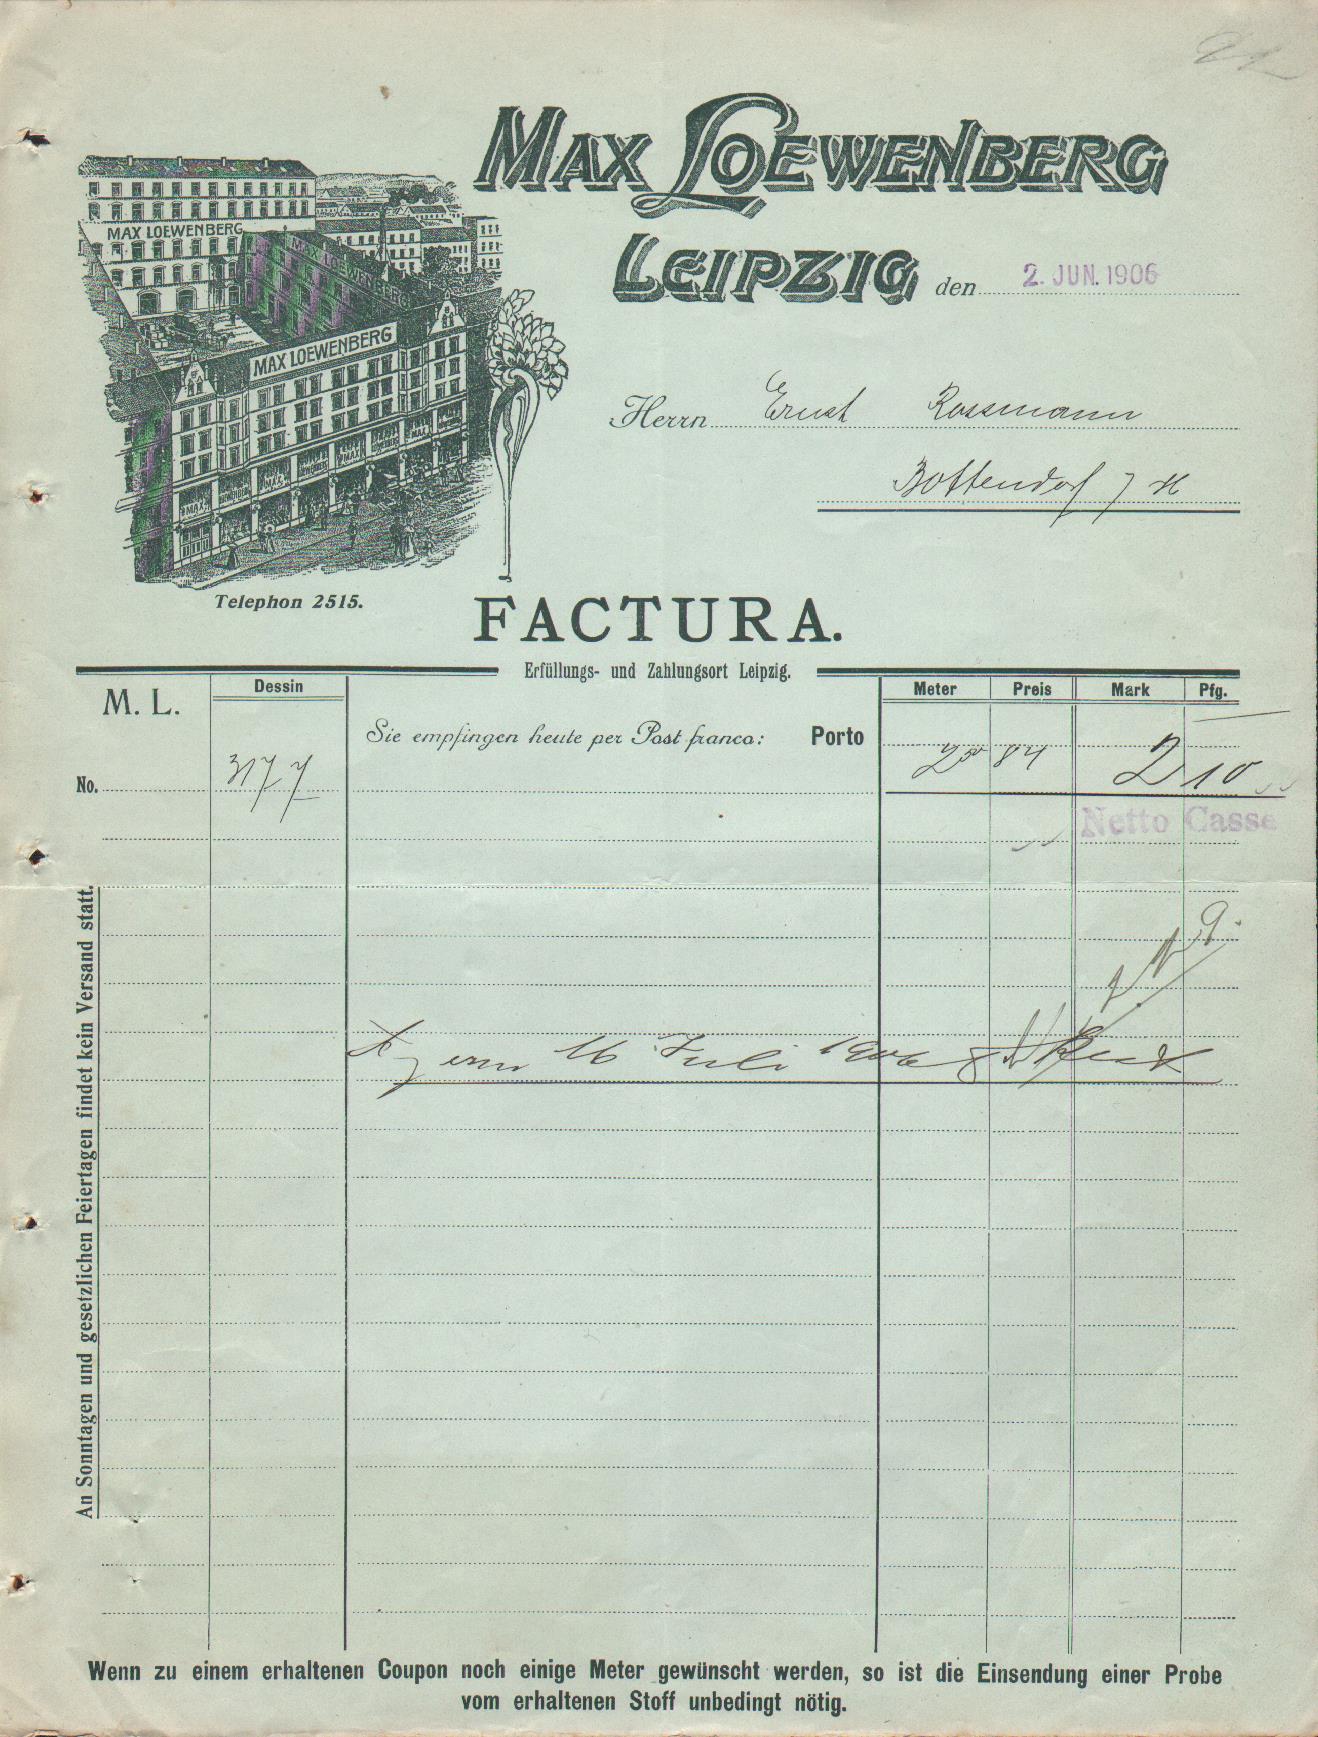 MAX LOEWENBERG
LEIPZIG den 2. JUN. 1906
MAX LOEWENBERG
MAX LOEWENBERG
MAX LOEWENBERG
Herrn Ernst Rossmann
Bottendorf
Telephon 2515.
FACTURA.
Erfüllungs- und Zahlungsort Leipzig.
M. L.
Dessin
Meter Preis Mark Pfg.
Sie empfingen heute per Post franco: Porto
No. 3177 2 50 84 2 10
Netto Casse
16 Juli 1906
An Sonntagen und gesetzlichen Feiertagen findet kein Versand statt.
Wenn zu einem erhaltenen Coupon noch einige Meter gewünscht werden, so ist die Einsendung einer Probe
vom erhaltenen Stoff unbedingt nötig.